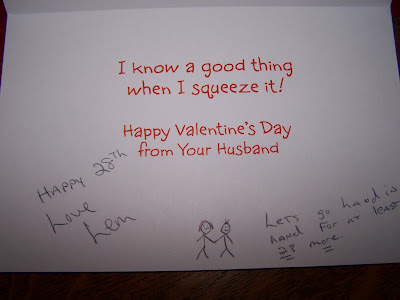 I know a good thing
when I squeeze it!
Happy Valentine's Day
from Your Husband
Happy 28th
Love
Lem
Lets go hand in
hand for at least
28 more.